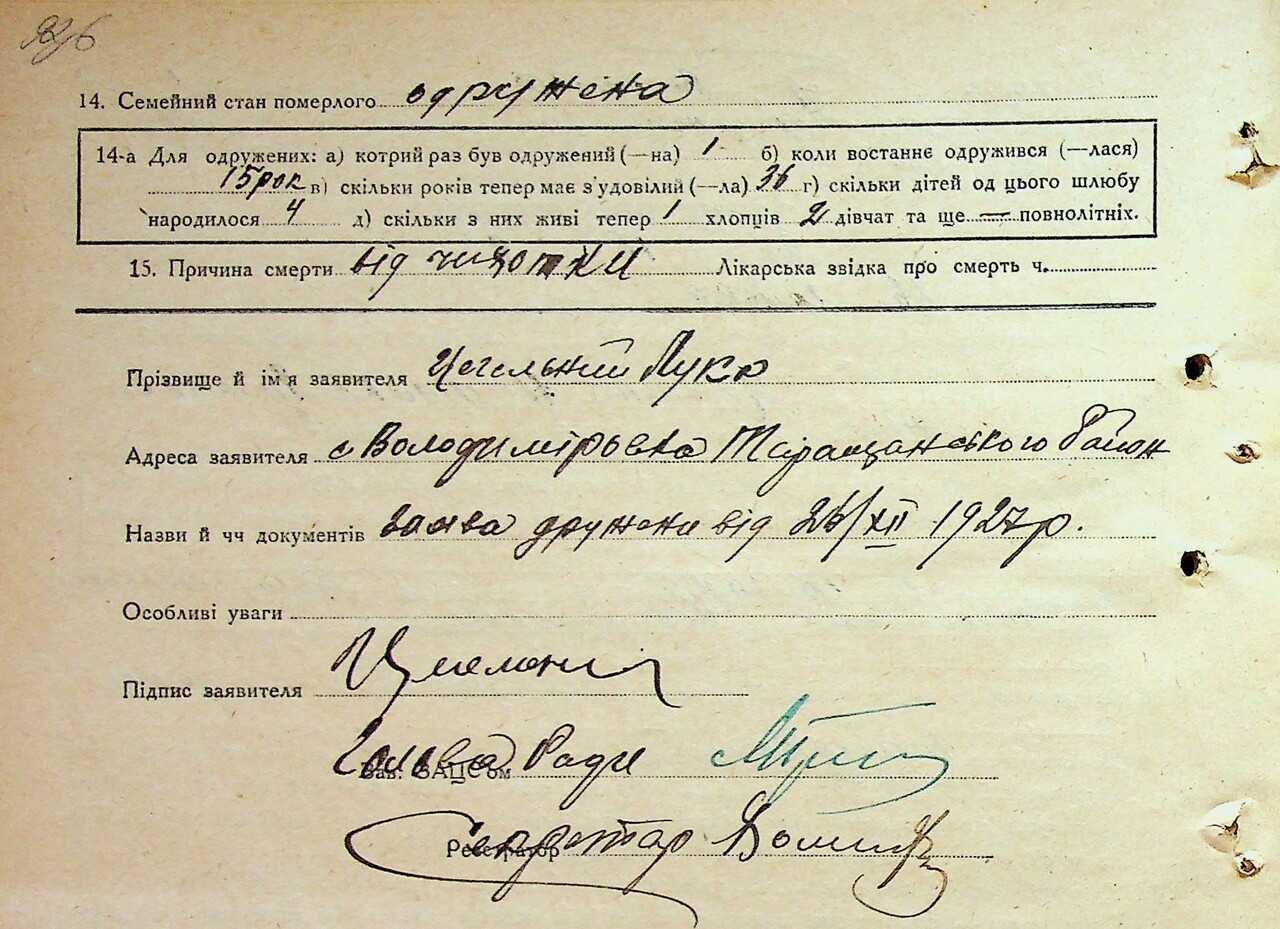 14. Семейний стан померлого одружена
14-а Для одружених: а) котрий раз був одружений (—на) 1 б) коли востаннє одружився (—лася)
15 рок в) скільки років тепер має з'удовілий (—ла) 36 г) скільки дітей од цього шлюбу
народилося 4 д) скільки з них живі тепер 1 хлопців 2 дівчат та ще — повнолітніх.
15. Причина смерти від чихотки Лікарська звідка про смерть ч.
Прізвище й ім'я заявителя Цегельний Лука
Адреса заявителя с Володиміровка Таращанського Район
Назви й чч документів заява дружени від 26/XII 1927 р.
Особливі уваги
Підпис заявителя
Зав. ЗАЦС'ом Голова Ради
Реєстратор Секретар